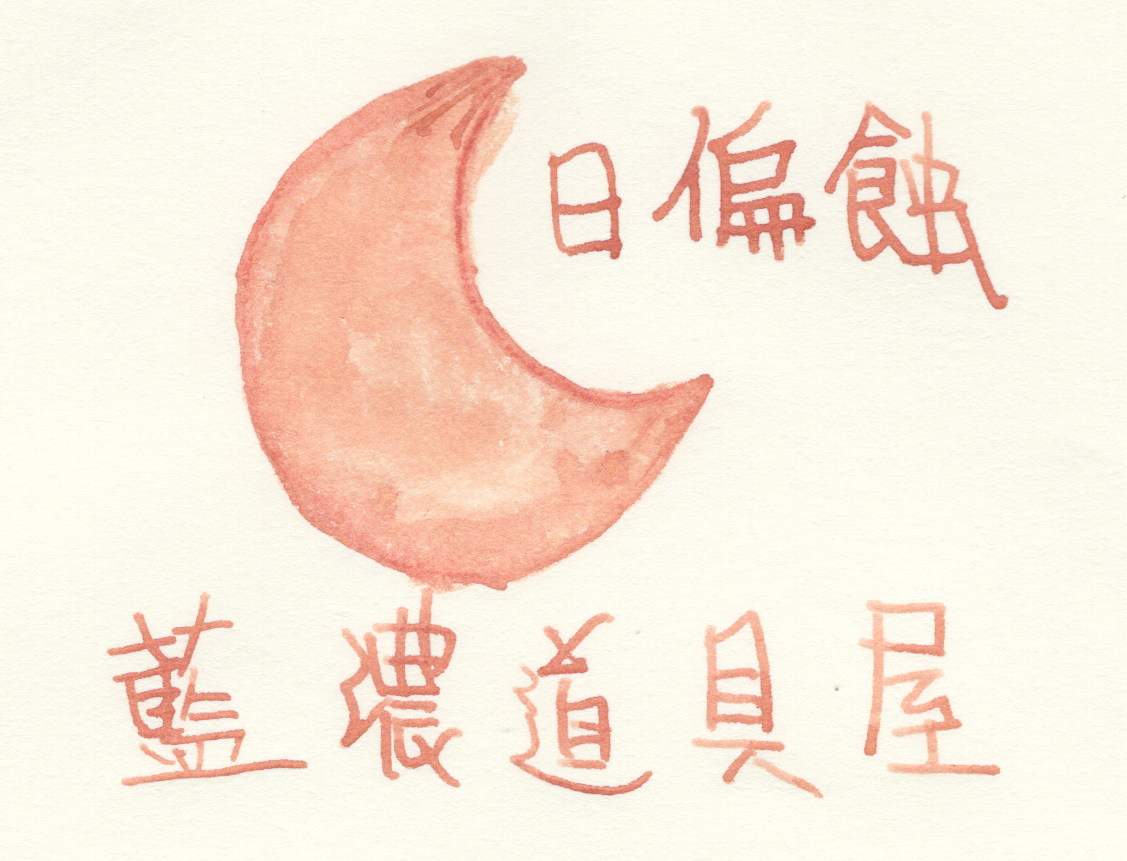 日偏蝕
藍濃道具屋